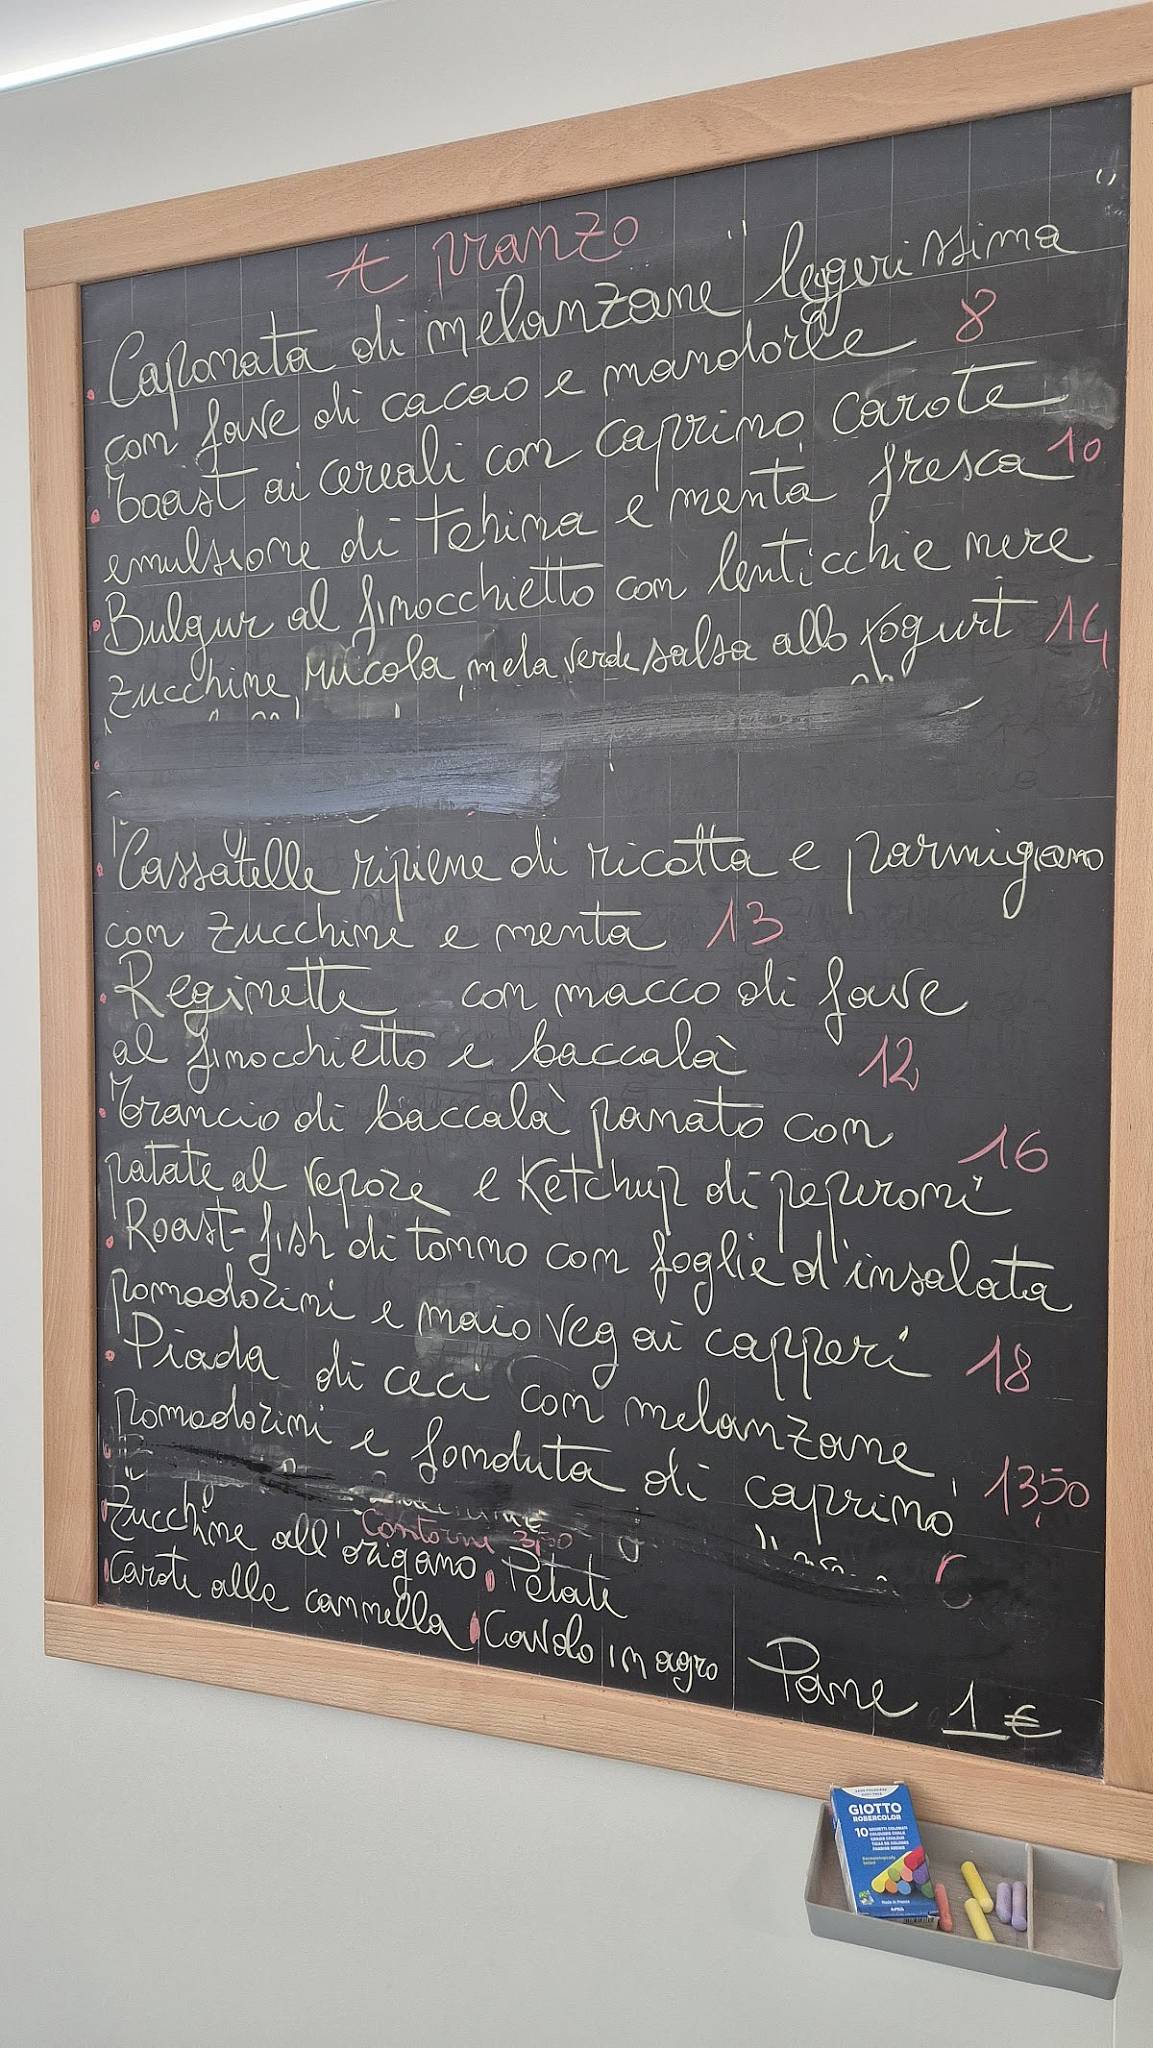 A pranzo
Caponata di melanzane "leggerissima"
con fave di cacao e mandorle 8
Toast ai cereali con caprino, carote
emulsione di tehina e menta fresca 10
Bulgur al finocchietto con lenticchie nere
zucchine, rucola, mela verde salsa allo yogurt 14
Cassatelle ripiene di ricotta e parmigiano
con zucchine e menta 13
Reginette con macco di fave
al finocchietto e baccalà 12
Trancio di baccalà panato con
patate al vapore e Ketchup di peperoni 16
Roast-fish di tonno con foglie d'insalata
pomodorini e maio veg ai capperi 18
Piada di ceci con melanzane
pomodorini e fonduta di caprino 13,50
Contorni 3,50
Zucchine all'origano Patate
Carote alla cannella Cavolo in agro
Pane 1 €
GIOTTO
ROBERCOLOR
10